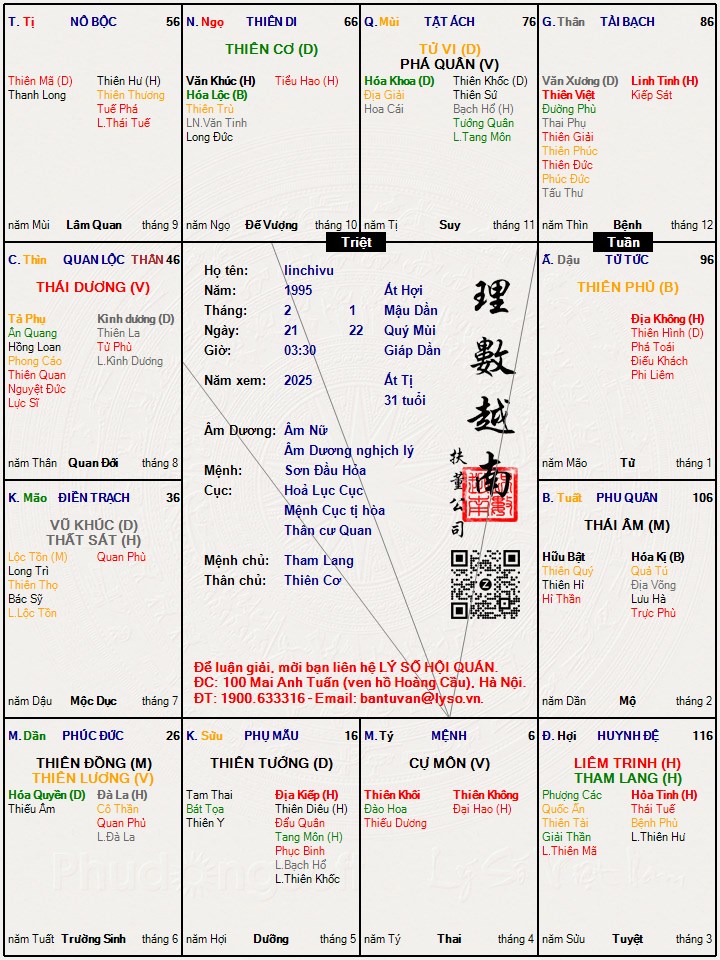 T. Tị NÔ BỘC 56
Thiên Mã (D) Thiên Hư (H)
Thanh Long Thiên Thương
Tuế Phá
L.Thái Tuế
năm Mùi Lâm Quan tháng 9
N. Ngọ THIÊN DI 66
THIÊN CƠ (D)
Văn Khúc (H) Tiểu Hao (H)
Hóa Lộc (B)
Thiên Trù
LN.Văn Tinh
Long Đức
năm Ngọ Đế Vượng tháng 10
Q. Mùi TẬT ÁCH 76
TỬ VI (D)
PHÁ QUÂN (V)
Hóa Khoa (D) Thiên Khốc (D)
Địa Giải Thiên Sứ
Hoa Cái Bạch Hổ (H)
Tướng Quân
L.Tang Môn
năm Tị Suy tháng 11
G. Thân TÀI BẠCH 86
Văn Xương (D) Linh Tinh (H)
Thiên Việt Kiếp Sát
Đường Phù
Thai Phụ
Thiên Giải
Thiên Phúc
Thiên Đức
Phúc Đức
Tấu Thư
năm Thìn Bệnh tháng 12
Triệt
Tuần
C. Thìn QUAN LỘC THÂN 46
THÁI DƯƠNG (V)
Tả Phụ Kình dương (D)
Ân Quang Thiên La
Hồng Loan Tử Phù
Phong Cáo L.Kình Dương
Thiên Quan
Nguyệt Đức
Lực Sĩ
năm Thân Quan Đới tháng 8
Họ tên: linchivu
Năm: 1995 Ất Hợi
Tháng: 2 1 Mậu Dần
Ngày: 21 22 Quý Mùi
Giờ: 03:30 Giáp Dần
Năm xem: 2025 Ất Tị
31 tuổi
Âm Dương: Âm Nữ
Âm Dương nghịch lý
Mệnh: Sơn Đầu Hỏa
Cục: Hoả Lục Cục
Mệnh Cục tị hòa
Thân cư Quan
Mệnh chủ: Tham Lang
Thân chủ: Thiên Cơ
理數越南
扶董公司
Để luận giải, mời bạn liên hệ LÝ SỐ HỘI QUÁN.
ĐC: 100 Mai Anh Tuấn (ven hồ Hoàng Cầu), Hà Nội.
ĐT: 1900.633316 - Email: bantuvan@lyso.vn.
Ấ. Dậu TỬ TỨC 96
THIÊN PHỦ (B)
Địa Không (H)
Thiên Hình (D)
Phá Toái
Điếu Khách
Phi Liêm
năm Mão Tử tháng 1
K. Mão ĐIỀN TRẠCH 36
VŨ KHÚC (D)
THẤT SÁT (H)
Lộc Tồn (M) Quan Phù
Long Trì
Thiên Thọ
Bác Sỹ
L.Lộc Tồn
năm Dậu Mộc Dục tháng 7
B. Tuất PHU QUÂN 106
THÁI ÂM (M)
Hữu Bật Hóa Kị (B)
Thiên Quý Quả Tú
Thiên Hỉ Địa Võng
Hỉ Thần Lưu Hà
Trực Phù
năm Dần Mộ tháng 2
M. Dần PHÚC ĐỨC 26
THIÊN ĐỒNG (M)
THIÊN LƯƠNG (V)
Hóa Quyền (D) Đà La (H)
Thiếu Âm Cô Thần
Quan Phủ
L.Đà La
năm Tuất Trường Sinh tháng 6
K. Sửu PHỤ MẪU 16
THIÊN TƯỚNG (D)
Tam Thai Địa Kiếp (H)
Bát Tọa Thiên Diêu (H)
Thiên Y Đẩu Quân
Tang Môn (H)
Phục Binh
L.Bạch Hổ
L.Thiên Khốc
năm Hợi Dưỡng tháng 5
M. Tý MỆNH 6
CỰ MÔN (V)
Thiên Khôi Thiên Không
Đào Hoa Đại Hao (H)
Thiếu Dương
năm Tý Thai tháng 4
Đ. Hợi HUYNH ĐỆ 116
LIÊM TRINH (H)
THAM LANG (H)
Phượng Các Hỏa Tinh (H)
Quốc Ấn Thái Tuế
Thiên Tài Bệnh Phù
Giải Thần L.Thiên Hư
L.Thiên Mã
năm Sửu Tuyệt tháng 3